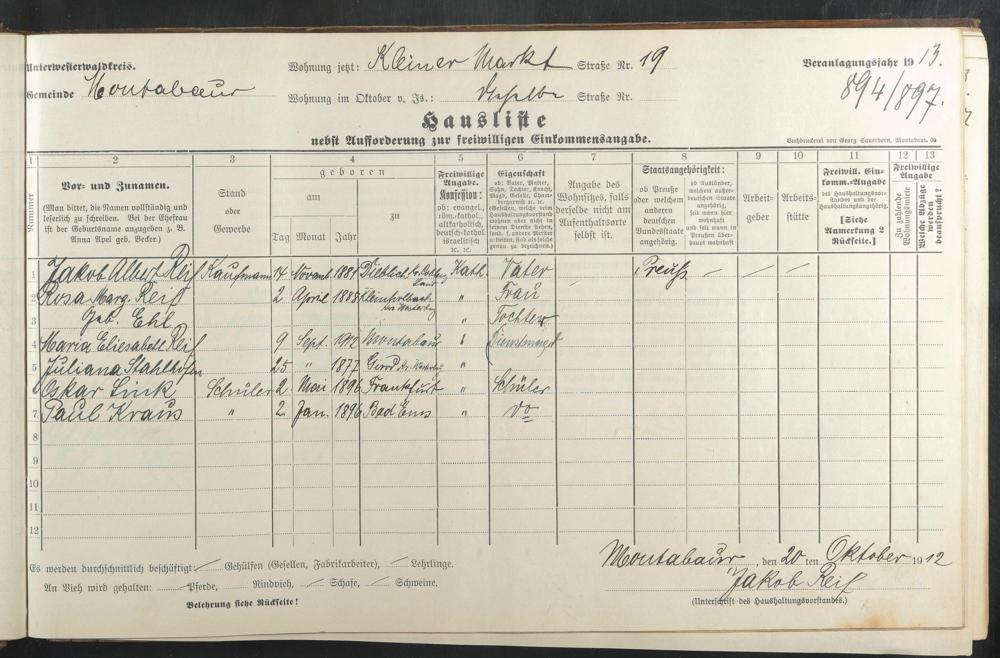 Unterwesterwaldkreis. Wohnung jetzt: Kleiner Markt Straße Nr. 19 Veranlagungsjahr 1913.
Gemeinde Montabaur Wohnung im Oktober v. Js.: Straße Nr. 894/897.
Hausliste
nebst Aufforderung zur freiwilligen Einkommensangabe.
Buchdruckerei von Georg Sauerborn, Montabaur.
1 2 3 4 5 6 7 8 9 10 11 12 13
Nummer
Vor- und Zunamen.
(Man bittet, die Namen vollständig und
leserlich zu schreiben. Bei der Ehefrau
ist der Geburtsname anzugeben z. B.
Anna Apel geb. Becker.)
Stand
oder
Gewerbe
geboren
am
zu
Tag Monat Jahr
Freiwillige
Angabe.
Konfession:
ob: evangel.,
röm.-kathol.,
altkatholisch,
deutsch-kathol.
israelitisch
ic. ic.
Eigenschaft
ob: Vater, Mutter,
Sohn, Tochter, Knecht,
Magd, Geselle, Cham-
bergarnist ic.
(Gesellen, welche beim
Haushaltungsvorstand
wohnen aber nicht in
seinem Dienste stehen,
sond. f. andere Meister
arbeiten, sind als solche
genau zu bezeichnen.)
Angabe des
Wohnsitzes, falls
derselbe nicht am
Aufenthaltsorte
selbst ist.
Staatsangehörigkeit:
ob Preuße
oder welchem
anderen
deutschen
Bundesstaate
angehörig.
ob Ausländer,
welchem außer-
deutschen Staate
angehörig,
seit wann hier
wohnhaft und
seit wann in
Preußen über-
haupt wohnhaft
Arbeit-
geber
Arbeits-
stätte
Freiwill. Ein-
komm.-Angabe
des Haushaltungsvor-
standes und der
Haushaltungsangehörig.
[Siehe
Anmerkung 2
Rückseite.]
Freiwillige
Angabe
Zu zahlende
Wohnungsmiete
Welche Abzüge
werden
beansprucht?
1 Jakob Albert Reif Kaufmann 14 Novemb. 1881 Dieblich Kath. Vater — Preuß — — —
Land
2 Rosa Marg. Reif 2 April 1888 " Frau
3 Geb. Ehl " Tochter
4 Maria Eliesabett Reif 9 Sept. 1912 Montabaur "
5 Juliana Stahlhofen 25 " 1877 Girod "
6 Oskar Link Schüler 2 Mai 1896 Frankfurt " Schüler
7 Paul Kraus " 2 Jan. 1896 Bad Ems " do
8
9
10
11
12
Montabaur, den 20 ten Oktober 1912
Es werden durchschnittlich beschäftigt: — Gehülfen (Gesellen, Fabrikarbeiter), — Lehrlinge.
Jakob Reif
An Vieh wird gehalten: — Pferde, — Rindvieh, — Schafe, — Schweine.
(Unterschrift des Haushaltungsvorstandes.)
Belehrung siehe Rückseite!